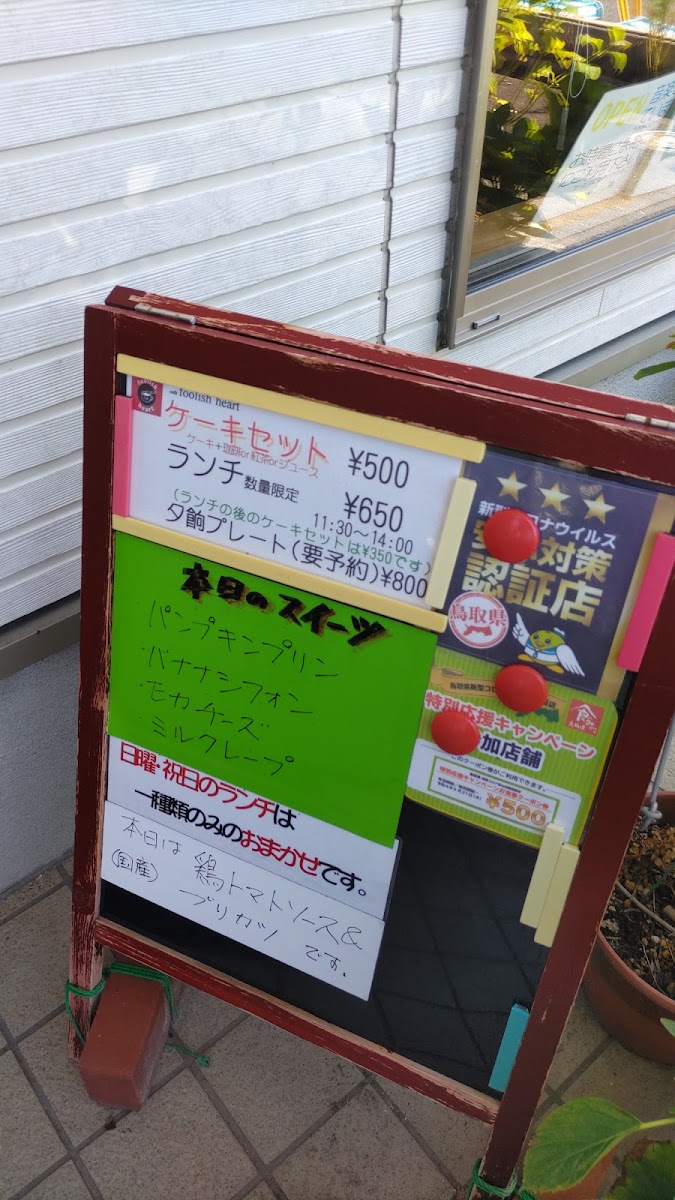 foolish heart
cafe foolish heart
ケーキセット ¥500
ケーキ+珈琲or紅茶orジュース
ランチ 数量限定 ¥650
11:30~14:00
(ランチの後のケーキセットは¥350です)
夕餉プレート(要予約)¥800
本日のスイーツ
・パンプキンプリン
・バナナシフォン
・モカチーズ
・ミルクレープ
日曜・祝日のランチは
一種類のみのおまかせです。
本日は 鶏トマトソース&
(国産) ブリカツ です。
ナウイルス
対策
認証店
鳥取県
特別応援キャンペーン
加店舗
クーポン券がご利用できます。
¥500
OPEN